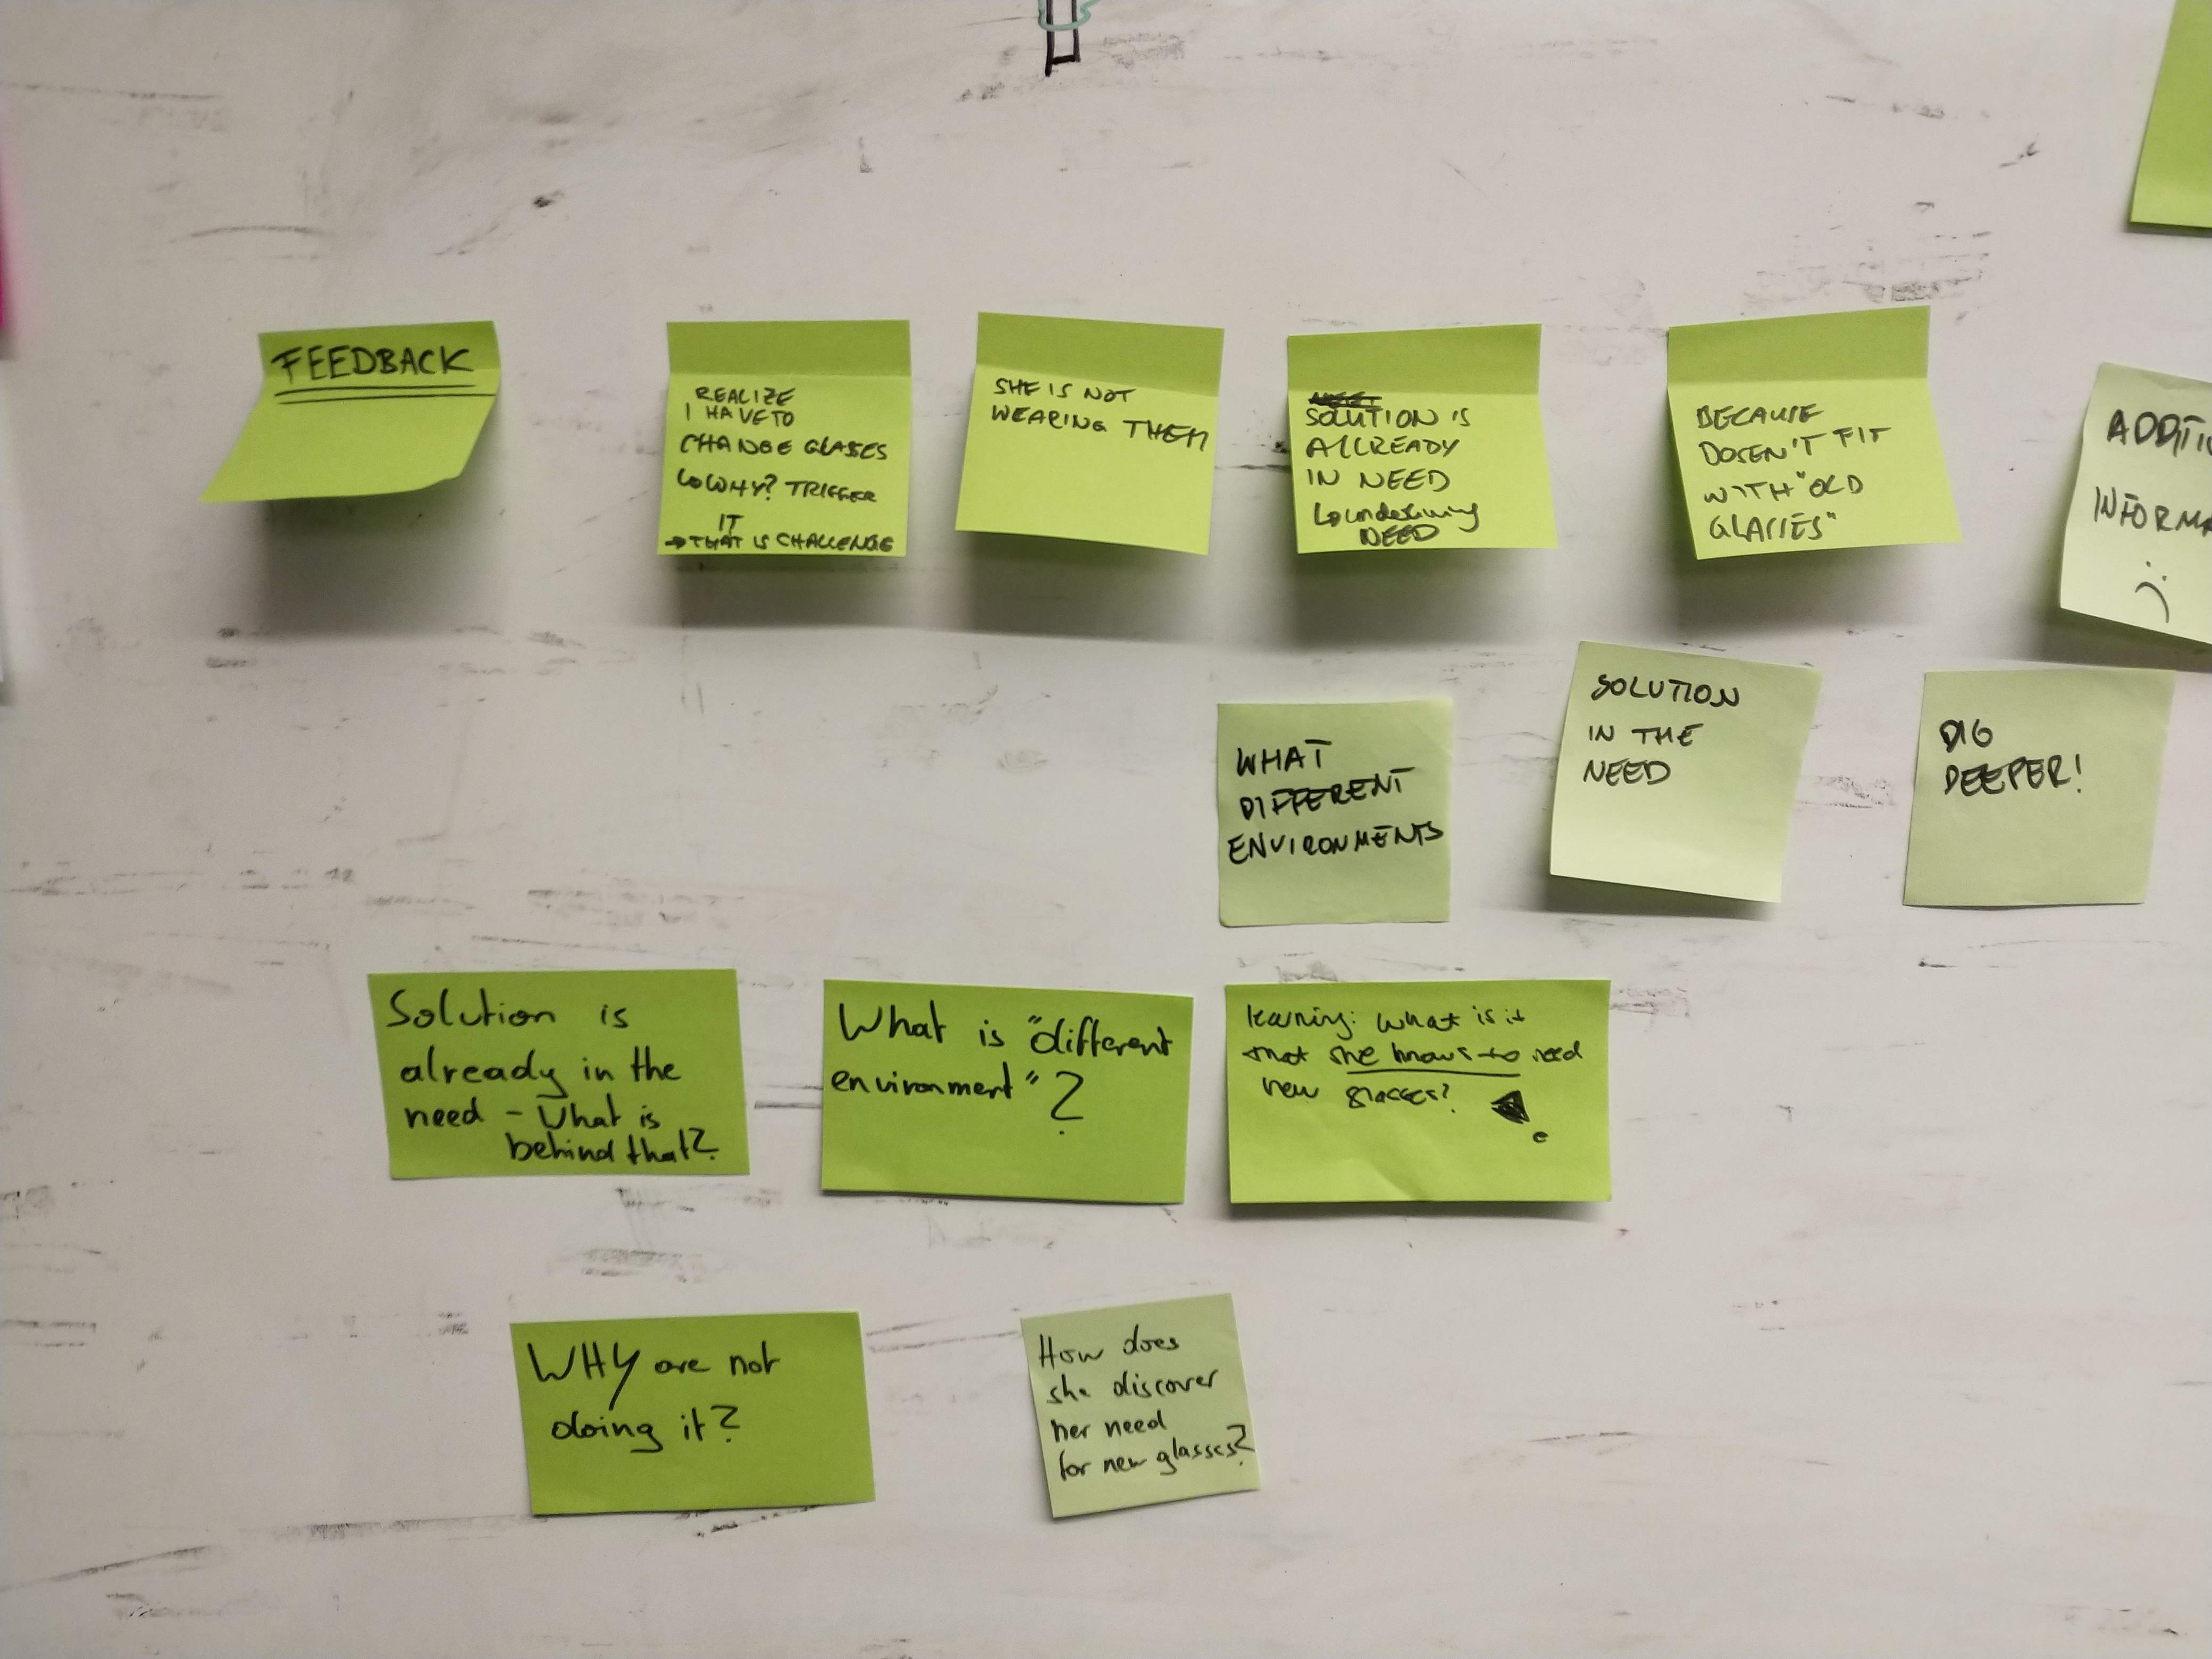 FEEDBACK
REALIZE
I HAVE TO
CHANGE GLASSES
WHY? TRIGGER
IT
→ THAT IS CHALLENGE
SHE IS NOT
WEARING THEM
SOLUTION IS
ALLREADY
IN NEED
NEED
BECAUSE
DOSEN'T FIT
WITH "OLD
GLASSES"
ADDITI
INFORMA
:(
WHAT
DIFFERENT
ENVIRONMENTS
SOLUTION
IN THE
NEED
DIG
DEEPER!
Solution is
already in the
need - What is
behind that?
What is "different
environment"?
learning: what is it
that she knows to need
new glasses?
WHY are not
doing it?
How does
she discover
her need
for new glasses?